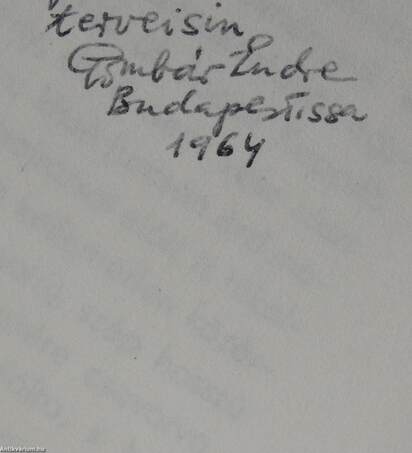 terveisin
Gombár Endre
Budapestissa
1964
Antikvarium.hu